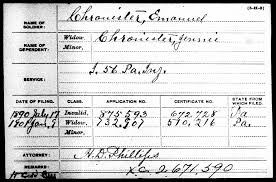 (3-H-6)
NAME OF SOLDIER: Chronister, Emanuel
NAME OF DEPENDENT: Widow, Chronister, Jennie
Minor,
SERVICE: I, 56 Pa. Inf.
DATE OF FILING. CLASS. APPLICATION NO. CERTIFICATE NO. STATE FROM WHICH FILED.
1890 July 17 Invalid, 875,593 672,728 Pa.
Widow, 732,907 510,216 Pa.
Minor,
ATTORNEY: H.D. Phillips
REMARKS: XC 2-671,590